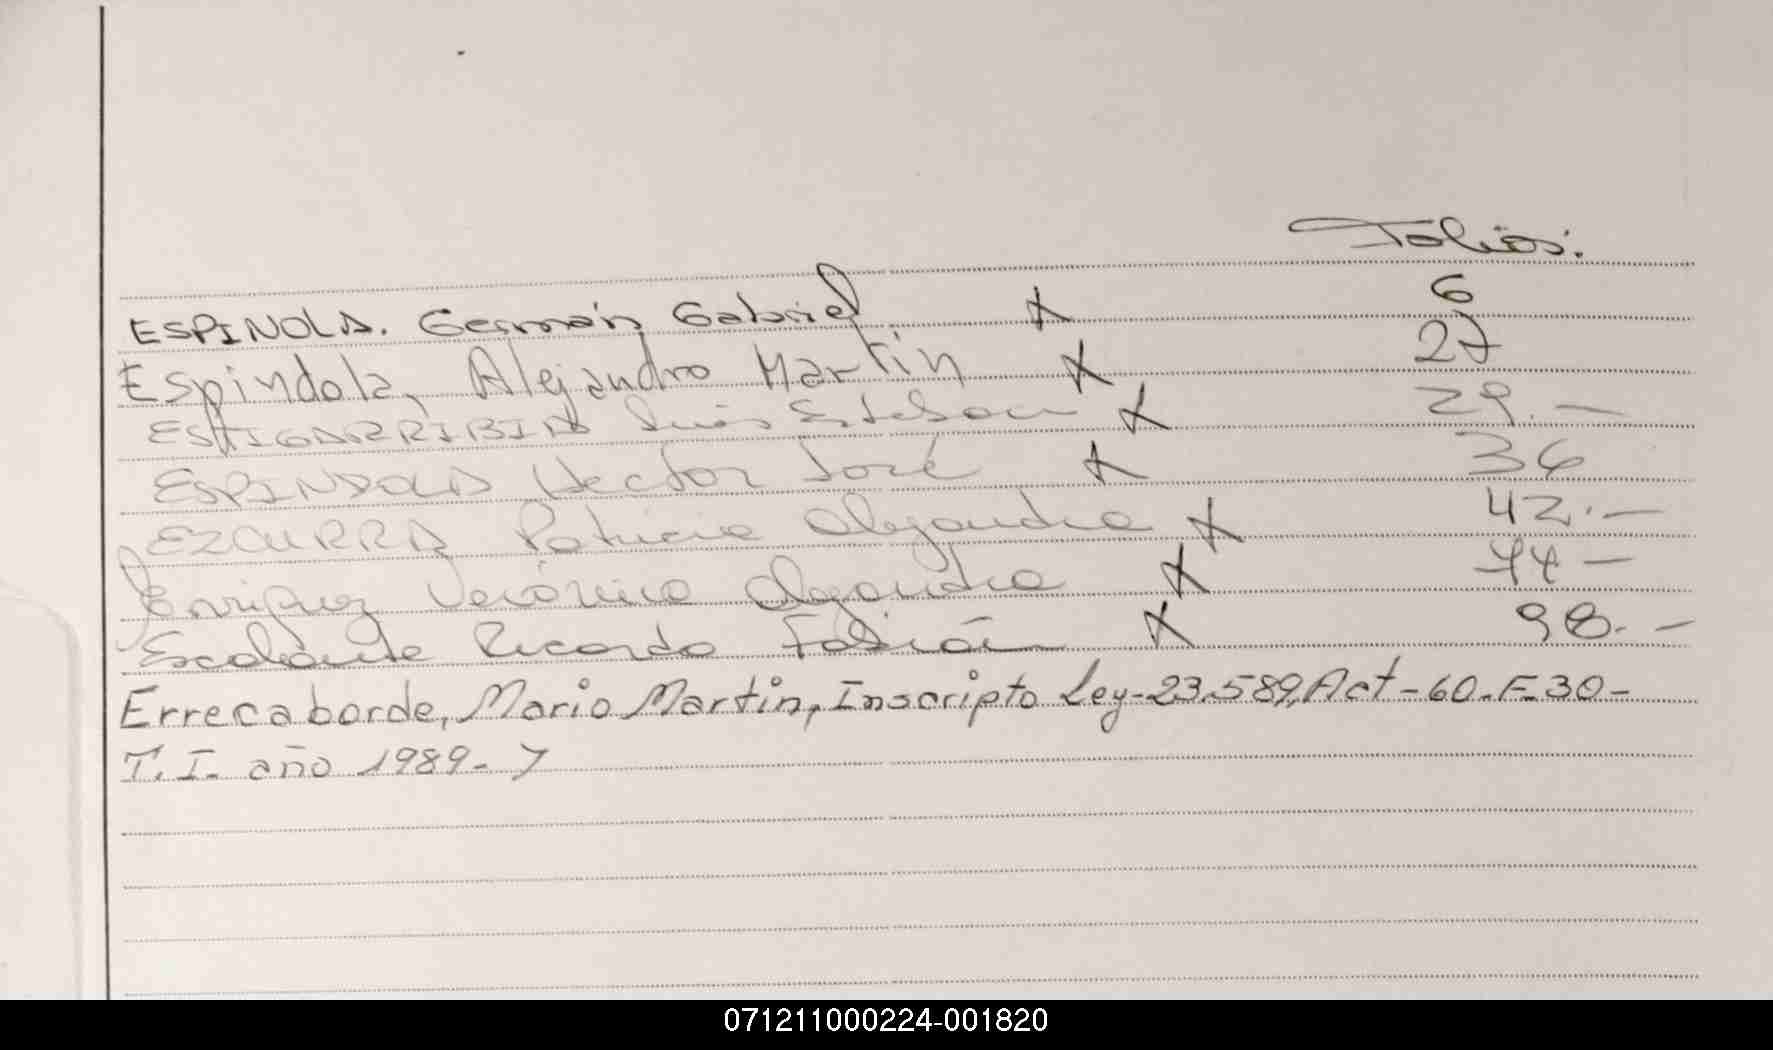 Folios:
ESPINOLA. Germán Gabriel X 6
Espindola, Alejandro Martín X 27
ESTIGARRIBIA Luis Esteban X 29.—
ESPINDOLA Hector José X 36
EZCURRA Patricia Alejandra X 42.—
Enriquez Verónica Alejandra X 44—
Escalante Ricardo Fabián X 98.—
Errecaborde, Mario Martin, Inscripto Ley-23.589, Act-60-F-30-
T.I. año 1989-
071211000224-001820